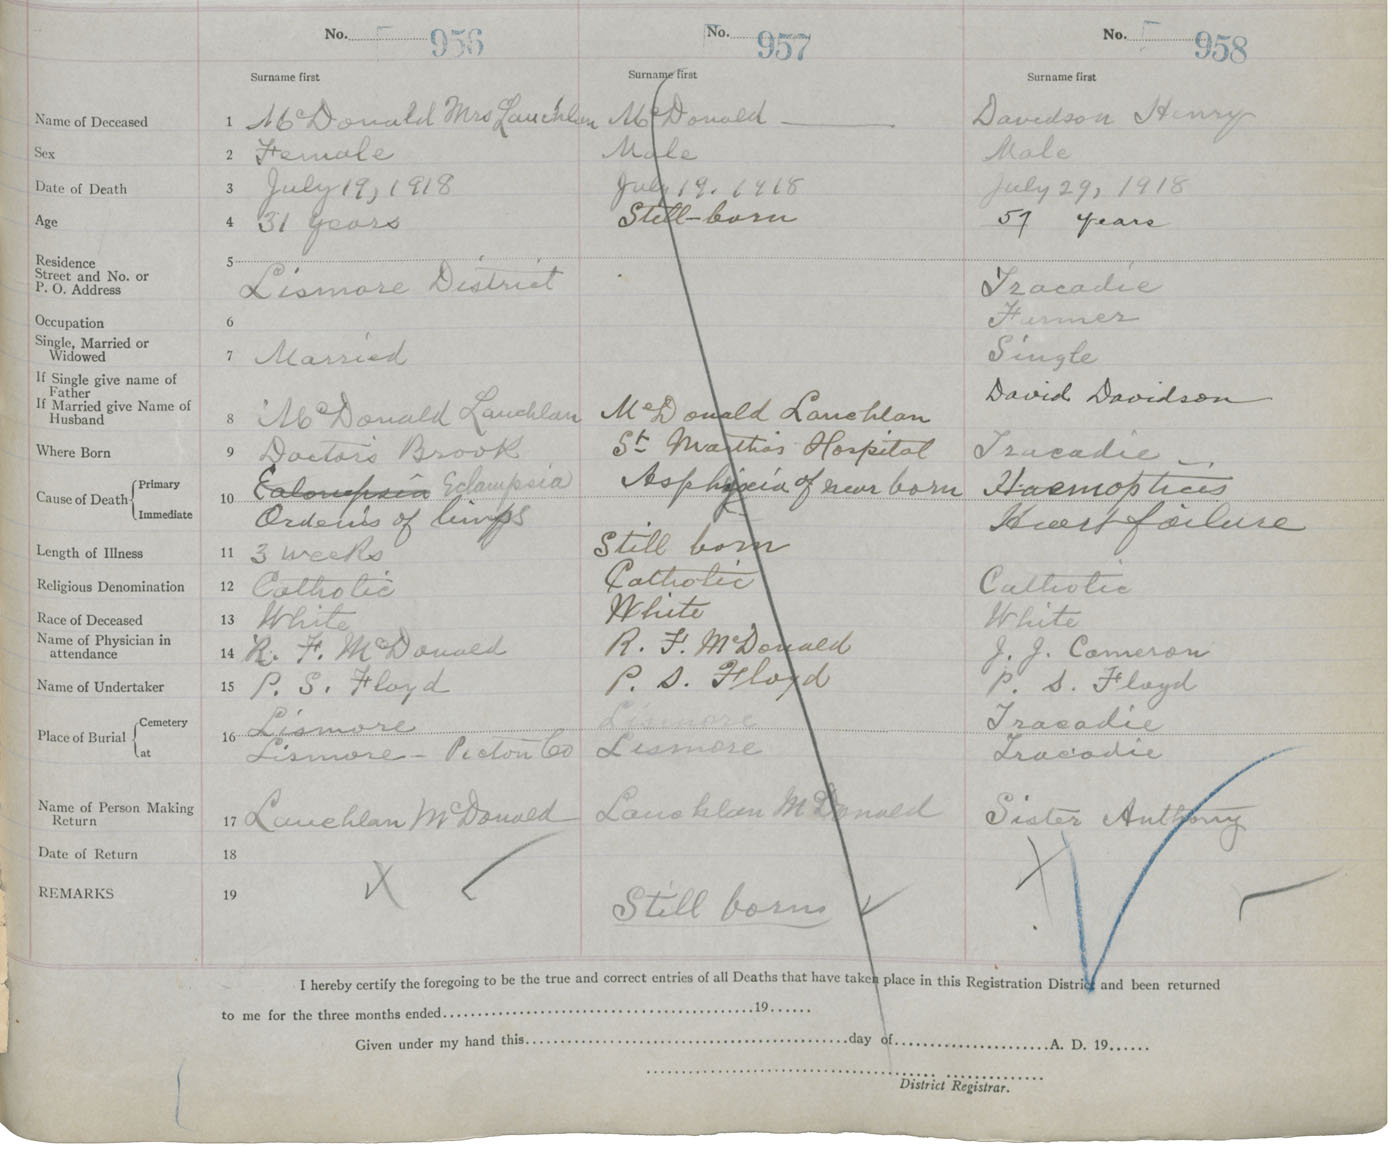 No. 956 No. 957 No. 958
Surname first Surname first Surname first
Name of Deceased 1 McDonald Mrs Lauchlan McDonald — Davidson Henry
Sex 2 Female Male Male
Date of Death 3 July 19, 1918 July 19. 1918 July 29, 1918
Age 4 31 years Still-born 57 years
Residence 5
Street and No. or
P. O. Address Lismore District Tracadie
Occupation 6 Farmer
Single, Married or
Widowed 7 Married Single
If Single give name of
Father David Davidson
If Married give Name of
Husband 8 McDonald Lauchlan McDonald Lauchlan
Where Born 9 Doctor's Brook St Martha's Hospital Tracadie
Cause of Death Primary Eclampsia Asphyxia of new born Haemoptices
10
Immediate of lungs Heart failure
Length of Illness 11 3 weeks Still born
Religious Denomination 12 Catholic Catholic Catholic
Race of Deceased 13 White White White
Name of Physician in
attendance 14 R. F. McDonald R. F. McDonald J. J. Cameron
Name of Undertaker 15 P. S. Floyd P. S. Floyd P. S. Floyd
Place of Burial Cemetery 16 Lismore Lismore Tracadie
at Lismore - Pictou Co Lismore Tracadie
Name of Person Making
Return 17 Lauchlan McDonald Lauchlan McDonald Sister Anthony
Date of Return 18
REMARKS 19 Still born
I hereby certify the foregoing to be the true and correct entries of all Deaths that have taken place in this Registration District and been returned
to me for the three months ended 19
Given under my hand this day of A. D. 19
District Registrar.